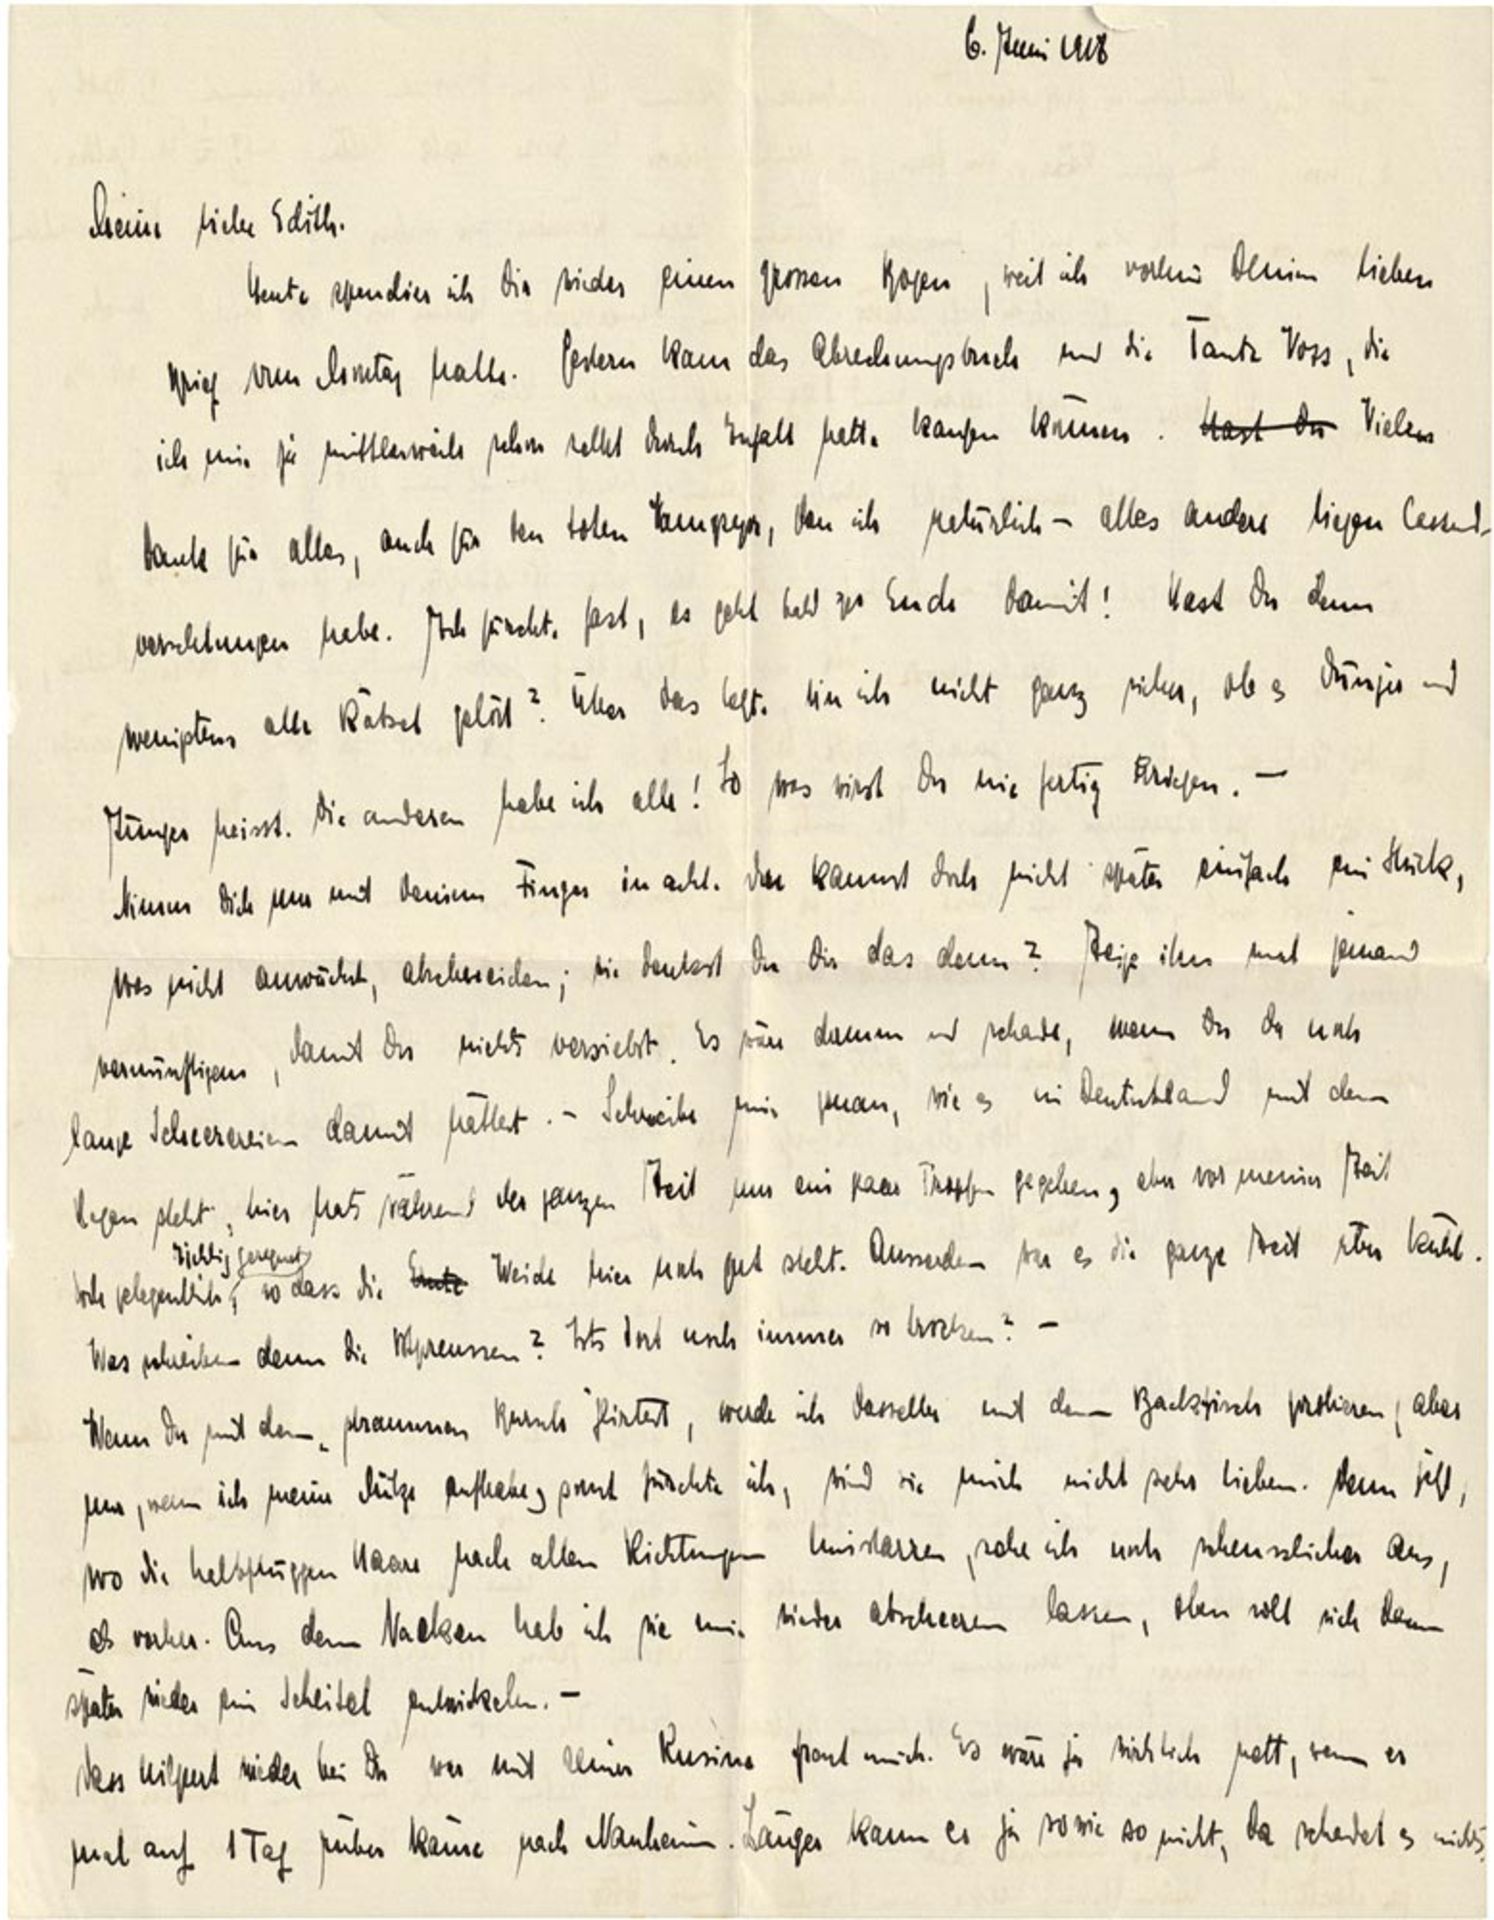 6. Juni 1918
Meine liebe Edith.
Heute spendier ich Dir wieder einen grossen Bogen, weil ich vorhin Deinen lieben
Brief vom Montag hatte. Gestern kam das Abrechnungsbuch und die Tante Voss, die
ich mir ja mittlerweile schon selbst durch Zufall hatte kaufen können. Hast Du Vielen
Dank für alles, auch für den toten, den ich natürlich – alles andere liegen lassend –
verschlungen habe. Ich fürchte fast, es geht bald zu Ende damit! Hast Du denn
wenigstens alle Rätsel gelöst? Über das letzte bin ich nicht ganz sicher, ob es Dünger und
Jünger heisst. Die anderen habe ich alle! So was wirst Du nie fertig kriegen. –
Nimm Dich nur mit Deinem Finger in acht. Du kannst doch nicht später einfach ein Stück,
was nicht anwächst, abschneiden; wie denkst Du Dir das denn? Zeige ihn mal jemand
vernünftigem, damit Du nichts versiebst. Es wäre dumm und schade, wenn Du da noch
lange Scheerereien damit hättest. – Schreibe mir genau, wie es in Deutschland mit dem
Regen steht, hier hats während der ganzen Zeit nur ein paar Tropfen gegeben, aber vor meiner Zeit
richtig geregnet
doch gelegentlich, so dass die Ernte Weide hier noch gut steht. Ausserdem war es die ganze Zeit über kühl.
Was schreiben denn die Ostpreussen? Ists dort noch immer so trocken? –
Wenn Du mit dem strammen Bursch flirtest, werde ich dasselbe mit dem Backfisch probieren, aber
nur, wenn ich meine Mütze aufhabe, sonst fürchte ich, wird sie mich nicht sehr lieben. Denn jetzt,
wo die halbflüggen Haare nach allen Richtungen hinstarren, sehe ich noch scheusslicher aus,
als vorher. Aus dem Nacken hab ich sie mir wieder abscheeren lassen, oben soll sich dann
später wieder ein Scheitel entwickeln. –
Dass Hilpert wieder bei Dir war mit seiner Kusine freut mich. Es wäre ja wirklich nett, wenn er
mal auf 1 Tag rüber käme nach Nauheim. Länger kann er ja sowie so nicht, da schadet es nichts,